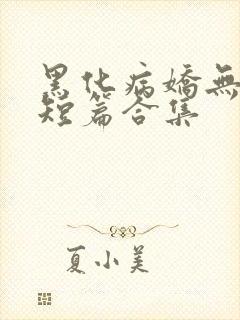 黑化病嬌無
短篇合集
夏小美